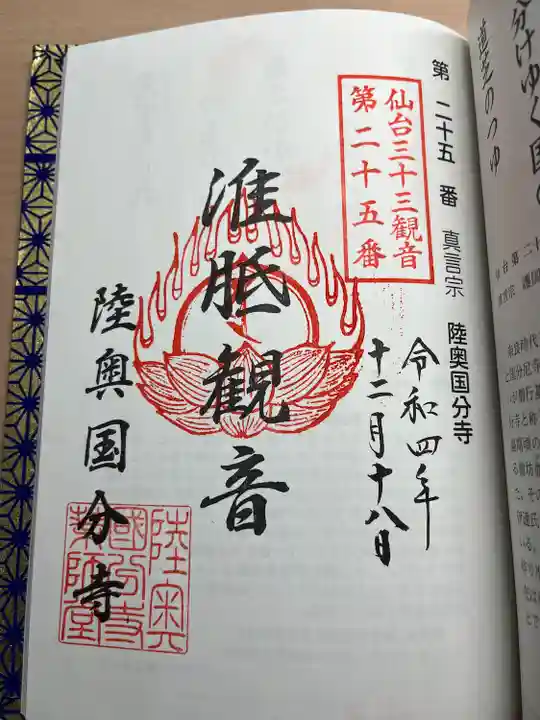 分けゆく国の
道芝のつゆ
第 二十五 番 真言宗 陸奥国分寺
仙台三十三観音
第二十五番
令和四年
十二月十八日
准胝観音
陸奥国分寺
陸奥
國分寺
薬師堂